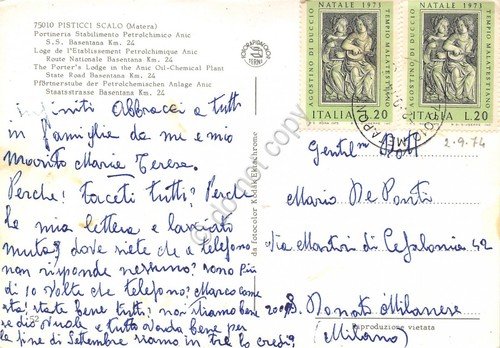 75010 PISTICCI SCALO (Matera)
Portineria Stabilimento Petrolchimico Anic
S.S. Basentana Km. 24
Loge de l'Etablissement Petrolchimique Anic
Route Nationale Basentana Km. 24
The Porter's Lodge in the Anic Oil-Chemical Plant
State Road Basentana Km. 24
Pförtnerstube der Petrolchemischen Anlage Anic
Staatsstrasse Basentana Km. 24
Infiniti abbracci a tutti
in famiglia da me e mio
marito Maria Teresa.
Perche! taceti tutti? Perche
la mia lettera e lasciata
muta? dove siete che a telefono
non risponde nessuno? sono più
di 10 volte che telefono? Marco come
sta? state bene tutti? noi stiamo bene
se dio vuole e tutto vada bene per
la fine di Settembre siamo in tre lo credi?
52
da fotocolor Kodak Ektachrome
NATALE 1973
AGOSTINO DI DUCCIO
TEMPIO MALATESTIANO
ITALIA L.20
NATALE 1973
AGOSTINO DI DUCCIO
TEMPIO MALATESTIANO
ITALIA L.20
2-9-74
Gentil Dott
Mario De Ponti
Via Martiri di Cefalonia 42
20097 S. Donato Milanese
(Milano)
Riproduzione vietata